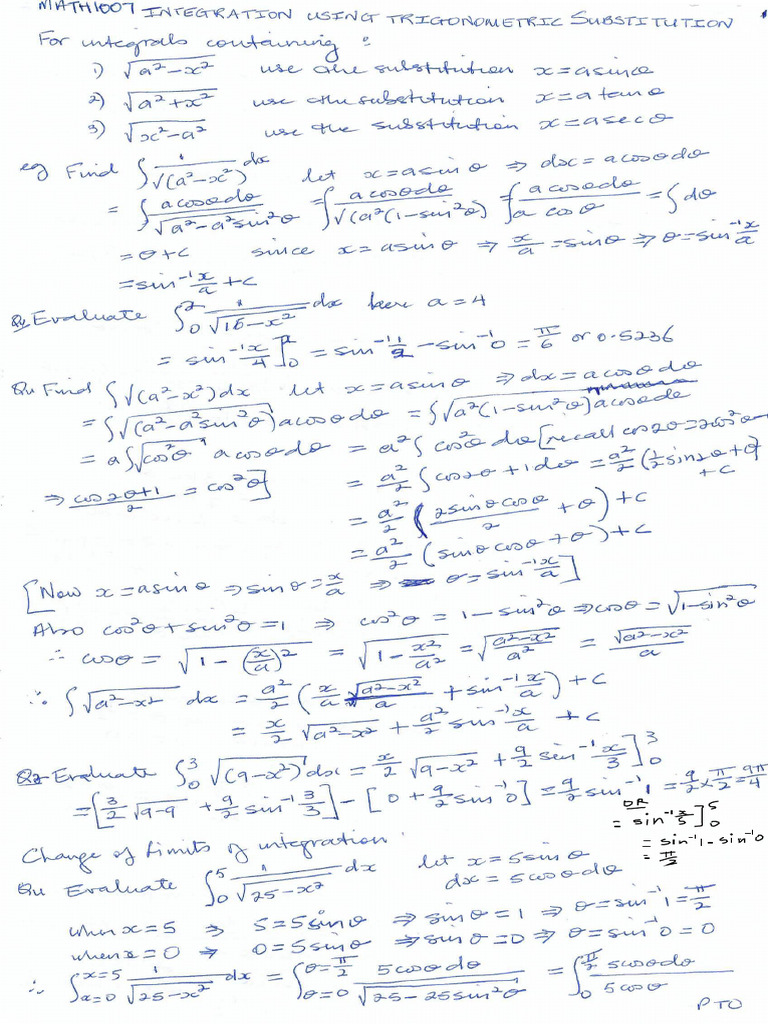 MATH1007 INTEGRATION USING TRIGONOMETRIC SUBSTITUTION
For integrals containing :
1) √(a²−x²) use the substitution x=asinθ
2) √(a²+x²) use the substitution x=a tanθ
3) √(x²−a²) use the substitution x=asecθ
eg Find ∫ 1/√(a²−x²) dx let x=asinθ ⇒ dx=acosθdθ
= ∫ acosθdθ/√(a²−a²sin²θ) = ∫ acosθdθ/√(a²(1−sin²θ)) = ∫ acosθdθ/a cosθ = ∫dθ
= θ+c since x=asinθ ⇒ x/a = sinθ ⇒ θ=sin⁻¹x/a
= sin⁻¹x/a + c
Qu Evaluate ∫₀² 1/√(16−x²) dx here a=4
= sin⁻¹x/4]₀² = sin⁻¹1/2 − sin⁻¹0 = π/6 or 0.5236
Qu Find ∫√(a²−x²)dx let x=asinθ ⇒ dx=acosθdθ
= ∫√(a²−a²sin²θ)acosθdθ = ∫√a²(1−sin²θ)acosθdθ
= a∫√cos²θ acosθdθ = a²∫cos²θ dθ [recall cos2θ=2cos²θ−1
⇒ cos2θ+1/2 = cos²θ] = a²/2 ∫cos2θ+1dθ = a²/2 (½sin2θ+θ) + c
= a²/2 (2sinθcosθ/2 + θ) + c
= a²/2 (sinθcosθ+θ) + c
[Now x=asinθ ⇒ sinθ=x/a ⇒ θ=sin⁻¹x/a]
Also cos²θ+sin²θ=1 ⇒ cos²θ=1−sin²θ ⇒ cosθ=√(1−sin²θ)
∴ cosθ = √(1−(x/a)²) = √(1−x²/a²) = √(a²−x²/a²) = √(a²−x²)/a
∴ ∫√(a²−x²) dx = a²/2 (x/a √(a²−x²)/a + sin⁻¹x/a) + c
= x/2 √(a²−x²) + a²/2 sin⁻¹x/a + c
Qu Evaluate ∫₀³ √(9−x²)dx = x/2 √(9−x²) + 9/2 sin⁻¹x/3]₀³
= [3/2 √(9−9) + 9/2 sin⁻¹3/3] − [0+9/2 sin⁻¹0] = 9/2 sin⁻¹1 = 9/2 × π/2 = 9π/4
Change of limits of integration.
Qu Evaluate ∫₀⁵ 1/√(25−x²) dx let x=5sinθ
dx=5cosθdθ
OR
= sin⁻¹x/5]₀⁵
= sin⁻¹1 − sin⁻¹0
= π/2
when x=5 ⇒ 5=5sinθ ⇒ sinθ=1 ⇒ θ=sin⁻¹1=π/2
when x=0 ⇒ 0=5sinθ ⇒ sinθ=0 ⇒ θ=sin⁻¹0=0
∴ ∫ₓ₌₀ˣ⁼⁵ 1/√(25−x²) dx = ∫θ=0 θ=π/2 5cosθdθ/√(25−25sin²θ) = ∫0 π/2 5cosθdθ/5cosθ
PTO